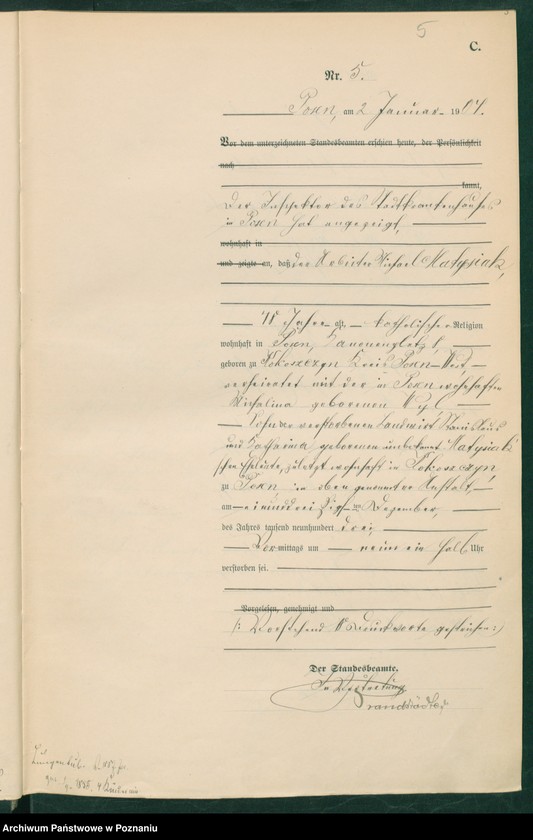 5
C.
Nr. 5.
Posen, am 2 Januar 1904.
Vor dem unterzeichneten Standesbeamten erschien heute, der Persönlichkeit
nach
kannt,
Der Inspektor des Stadtkrankenhauses
in Posen hat angezeigt,
wohnhaft in
und zeigte an, daß der Arbeiter Michael Matysiak,
Jahre alt, katholischer Religion
wohnhaft in Posen, Kanonenplatz
geboren zu Sokoszczyn Kreis Posen-West
verheiratet mit der in Posen wohnhaften
Michalina geborenen
Sohn der verstorbenen Landwirt Stanislaus
und Katharina geborenen unbekannt Matysiak
schen Eheleute, zuletzt wohnhaft in
zu Posen in oben genannter Anstalt,
am einunddreißigsten Dezember,
des Jahres tausend neunhundert drei,
Vormittags um neun ein halb Uhr
verstorben sei.
Vorgelesen, genehmigt und
(: Vorstehend Druckworte gestrichen :)
Der Standesbeamte.
In Vertretung
Brandstädter
Archiwum Państwowe w Poznaniu